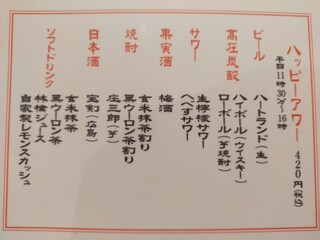 ハッピーアワー 420円(税込)
平日11時30分〜16時
ビール
ハートランド(生)
高圧炭酸
ハイボール(ウイスキー)
ローボール(芋焼酎)
サワー
生檸檬サワー
へべすサワー
果実酒
梅酒
焼酎
玄米抹茶割り
黒ウーロン茶割り
庄三郎(芋)
日本酒
宝剣(広島)
ソフトドリンク
玄米抹茶
黒ウーロン茶
林檎ジュース
自家製レモンスカッシュ